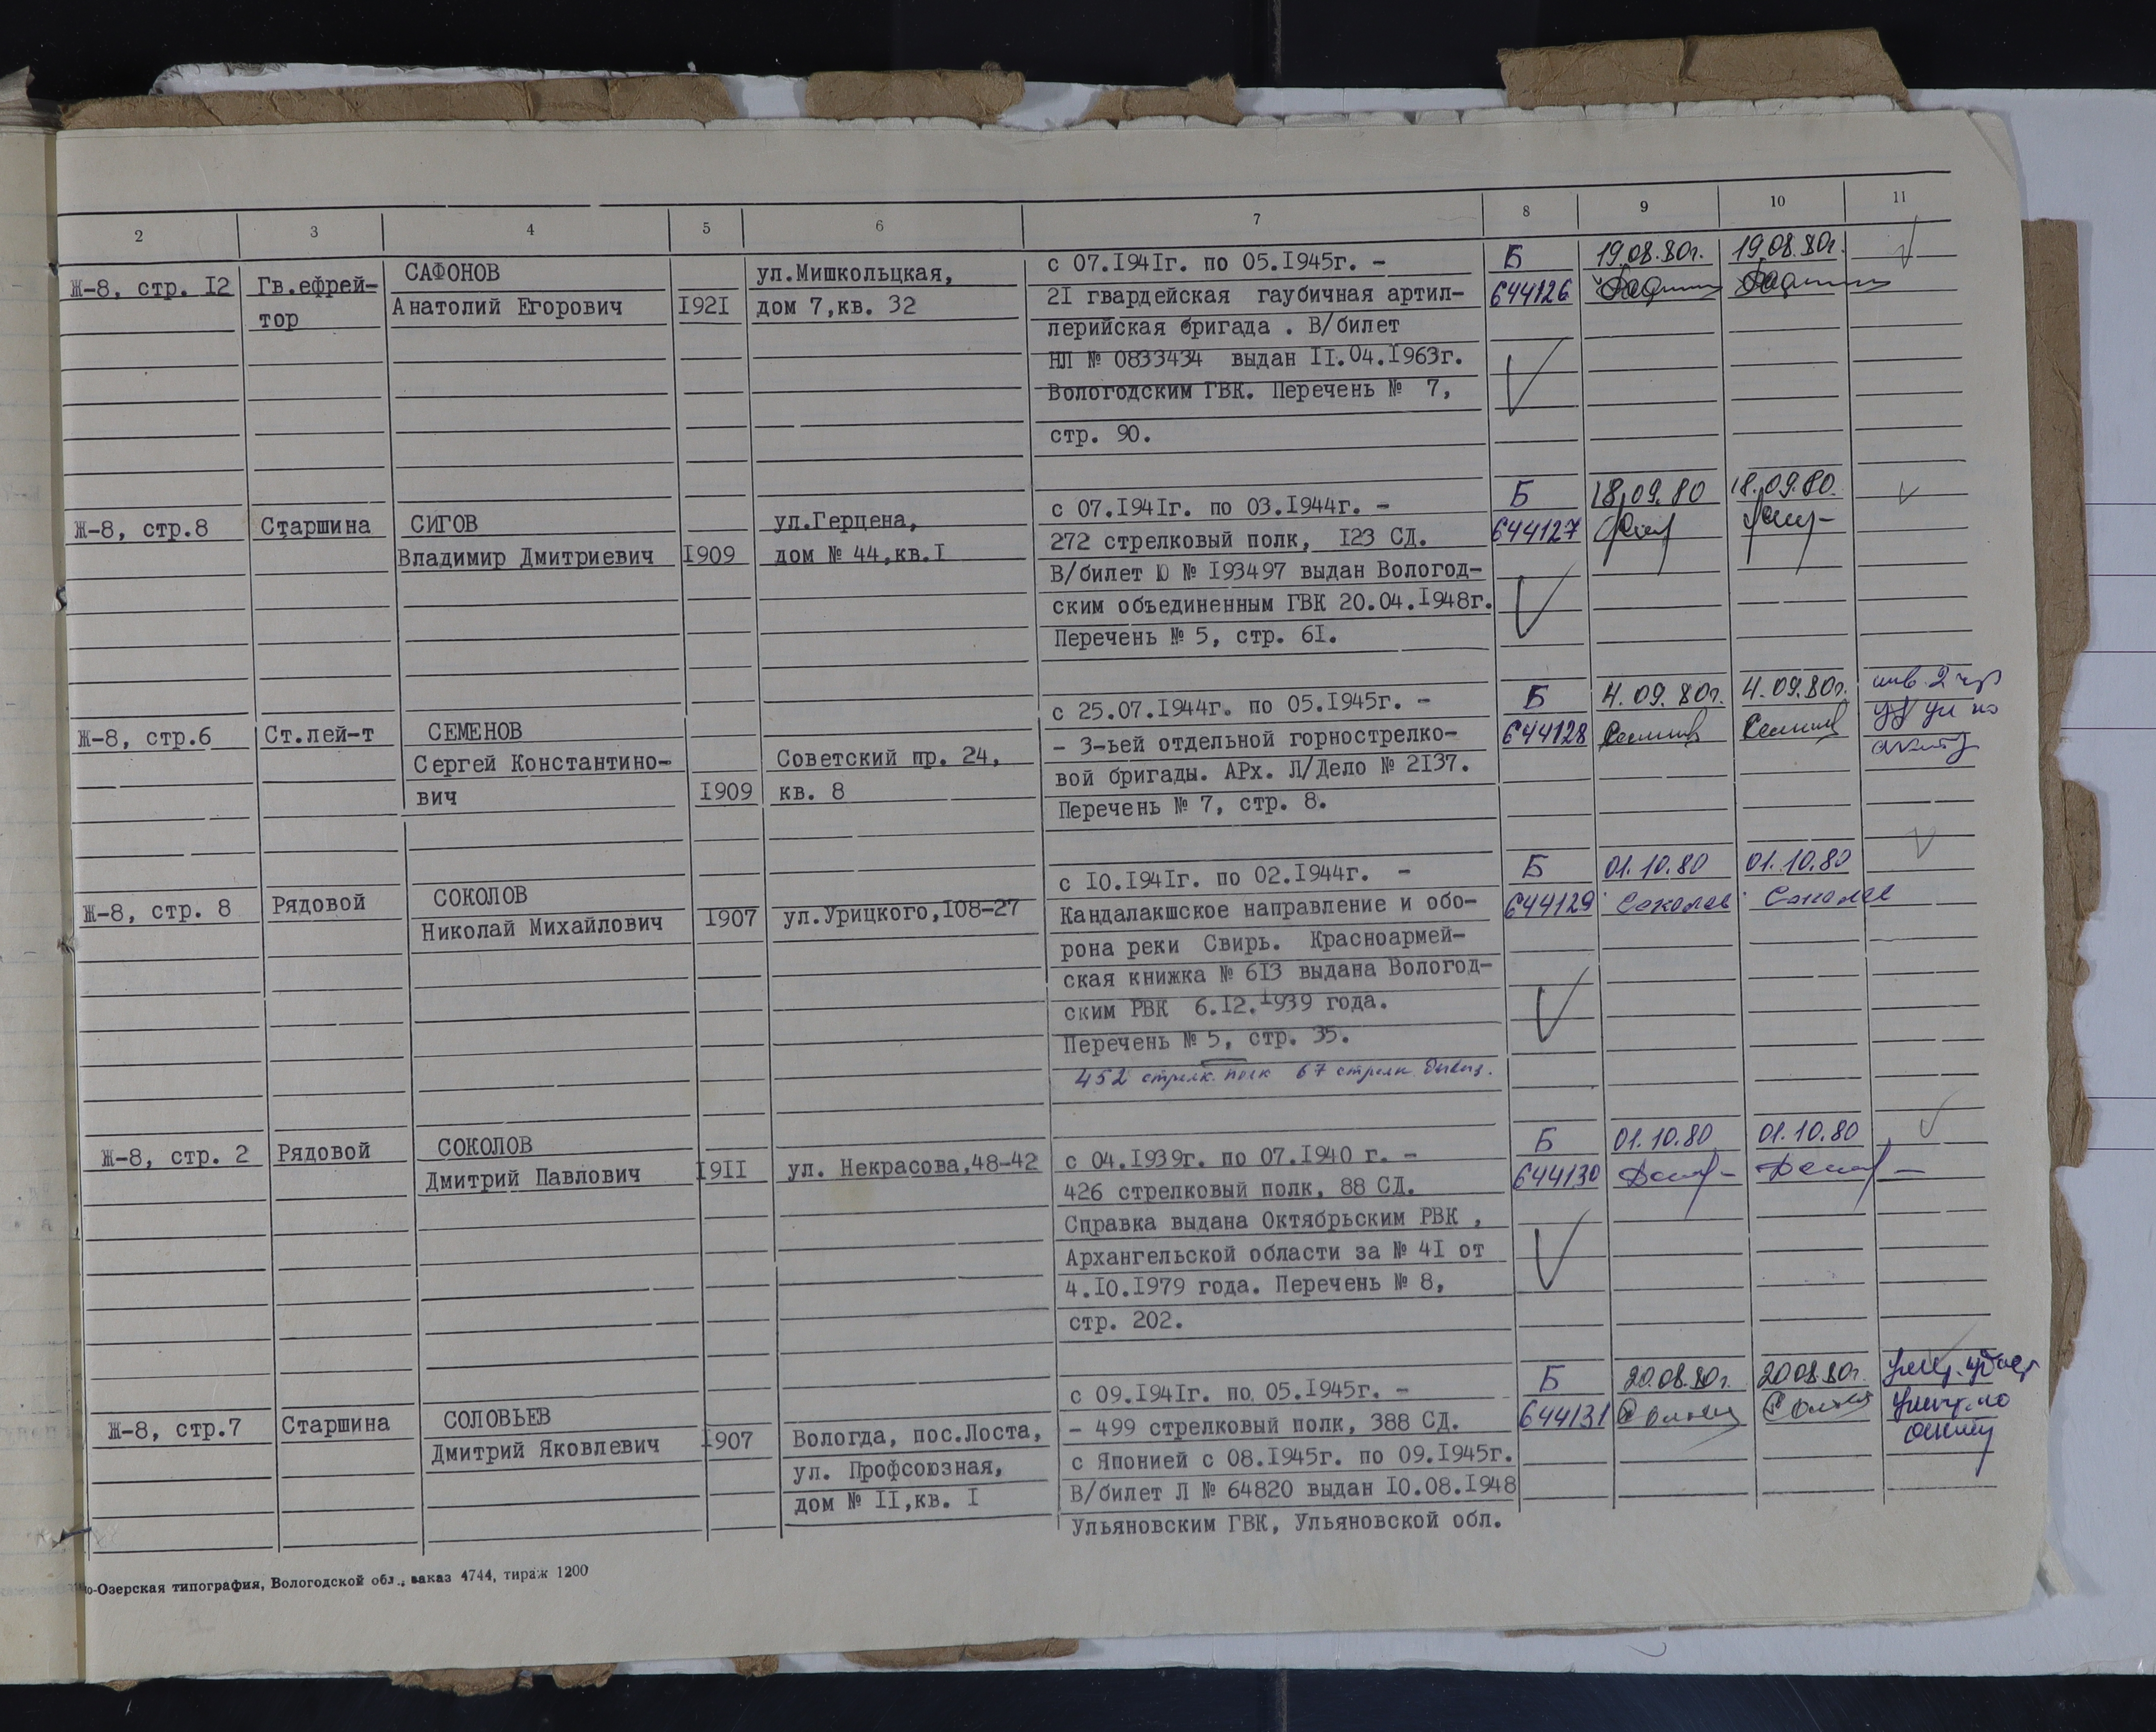 2 3 4 5 6 7 8 9 10 11
Ж-8, стр. I2 Гв.ефрей- САФОНОВ ул.Мишкольцкая, с 07.I94Iг. по 05.I945г. - Б 19.08.80г. 19.08.80г.
тор Анатолий Егорович I92I дом 7,кв. 32 2I гвардейская гаубичная артил- 644126
лерийская бригада . В/билет
НЛ № 0833434 выдан II.04.I963г.
Вологодским ГВК. Перечень № 7,
стр. 90.
Ж-8, стр.8 Старшина СИГОВ ул.Герцена, с 07.I94Iг. по 03.I944г. - Б 18.09.80 18.09.80.
Владимир Дмитриевич I909 дом № 44,кв.I 272 стрелковый полк, I23 СД. 644127
В/билет Ю № I93497 выдан Вологод-
ским объединенным ГВК 20.04.I948г.
Перечень № 5, стр. 6I.
Ж-8, стр.6 Ст.лей-т СЕМЕНОВ с 25.07.I944г. по 05.I945г. - Б 4.09.80г. 4.09.80г.
Сергей Константино- Советский пр. 24, - 3-ьей отдельной горнострелко- 644128
вич I909 кв. 8 вой бригады. АРх. Л/Дело № 2I37.
Перечень № 7, стр. 8.
Ж-8, стр. 8 Рядовой СОКОЛОВ с I0.I94Iг. по 02.I944г. - Б 01.10.80 01.10.80
Николай Михайлович I907 ул.Урицкого,I08-27 Кандалакшское направление и обо- 644129 Соколов Соколов
рона реки Свирь. Красноармей-
ская книжка № 6I3 выдана Вологод-
ским РВК 6.I2.I939 года.
Перечень № 5, стр. 35.
452 стрелк. полк 67 стрелк. дивиз.
Ж-8, стр. 2 Рядовой СОКОЛОВ с 04.I939г. по 07.I940 г. - Б 01.10.80 01.10.80
Дмитрий Павлович I9II ул. Некрасова,48-42 426 стрелковый полк, 88 СД. 644130
Справка выдана Октябрьским РВК ,
Архангельской области за № 4I от
4.I0.I979 года. Перечень № 8,
стр. 202.
Ж-8, стр.7 Старшина СОЛОВЬЕВ с 09.I94Iг. по 05.I945г. - Б 20.08.80г. 20.08.80г.
Дмитрий Яковлевич I907 Вологда, пос.Лоста, - 499 стрелковый полк, 388 СД. 644131
ул. Профсоюзная, с Японией с 08.I945г. по 09.I945г.
дом № II,кв. I В/билет Л № 64820 выдан I0.08.I948
Ульяновским ГВК, Ульяновской обл.
о-Озерская типография, Вологодской обл., заказ 4744, тираж 1200